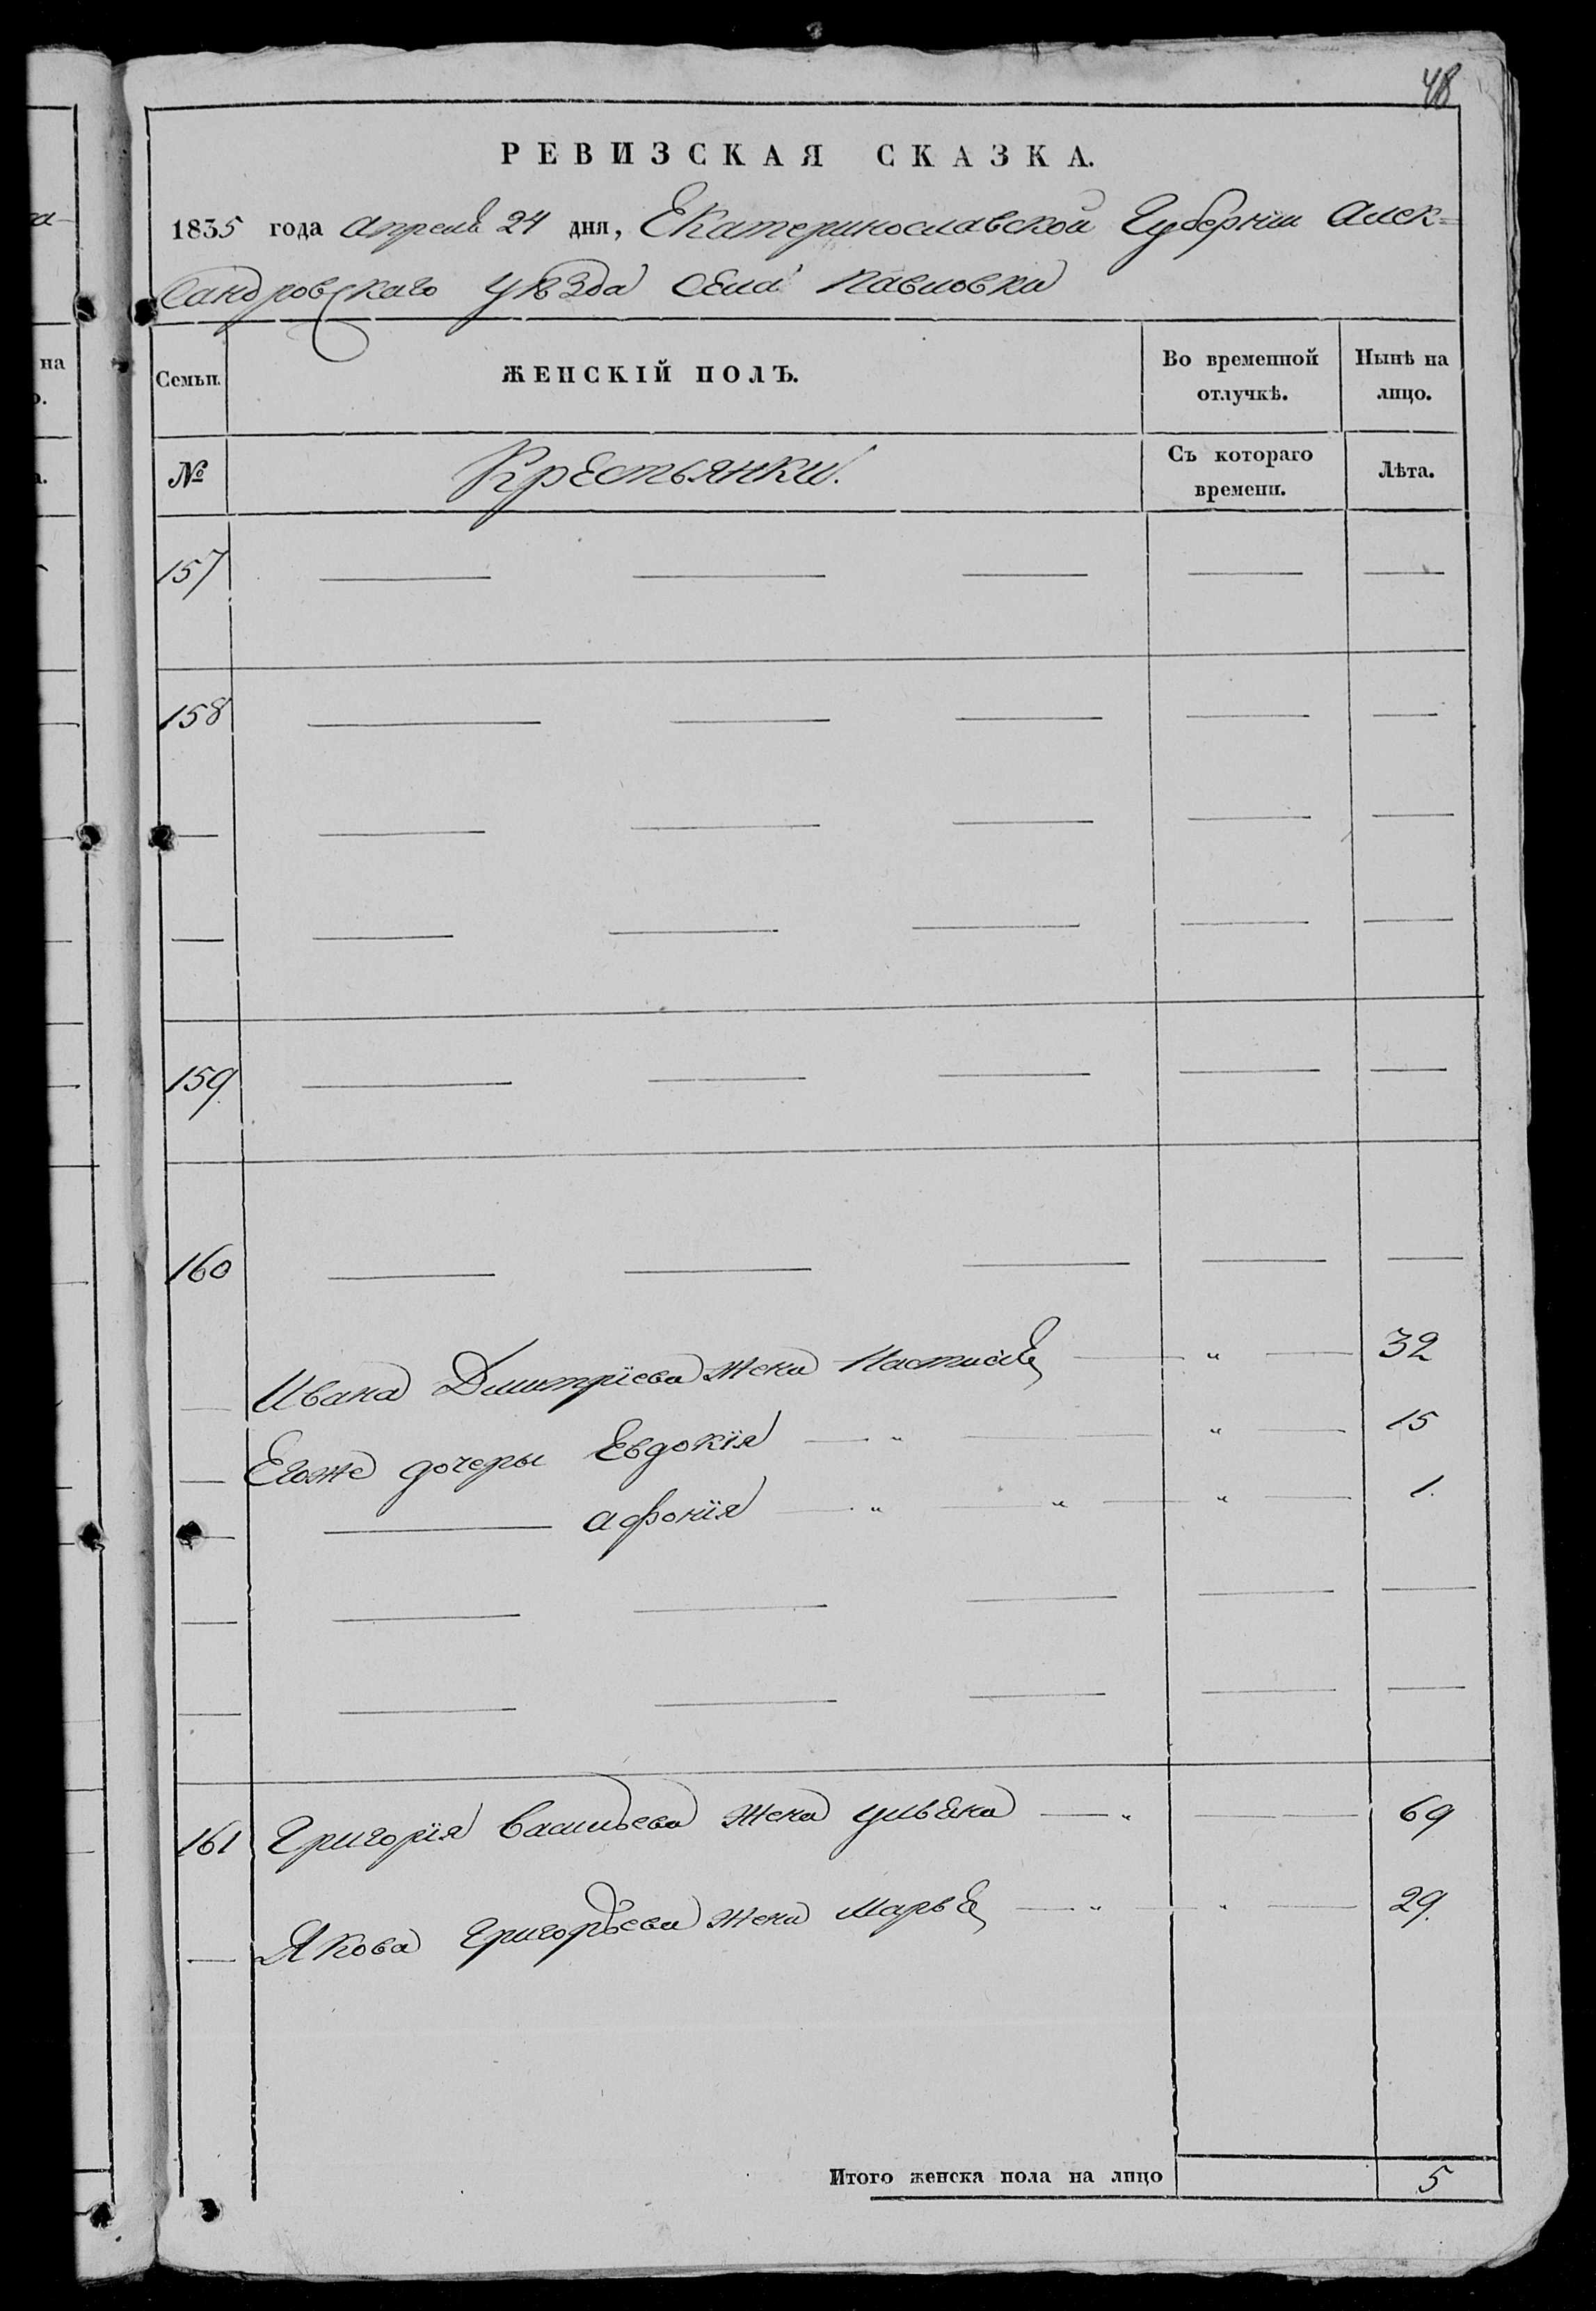 48
РЕВИЗСКАЯ СКАЗКА.
1835 года Апреля 24 дня, Екатеринославской Губернїи Алек=
сандровскаго уѣзда села Павловки
Семьи. ЖЕНСКІЙ ПОЛЪ. Во временной отлучкѣ. Нынѣ на лицо.
№ Крестьянки. Съ котораго времени. Лѣта.
157
158
159
160
Ивана Дмитрїева жена Настасія " 32
Егоже дочеры Евдокїя " " 15
Афонїя " " " 1.
161 Григорїя Васильева жена Ульяна " 69
Якова Григорьева жена Марья " " 29.
Итого женска пола на лицо 5
на